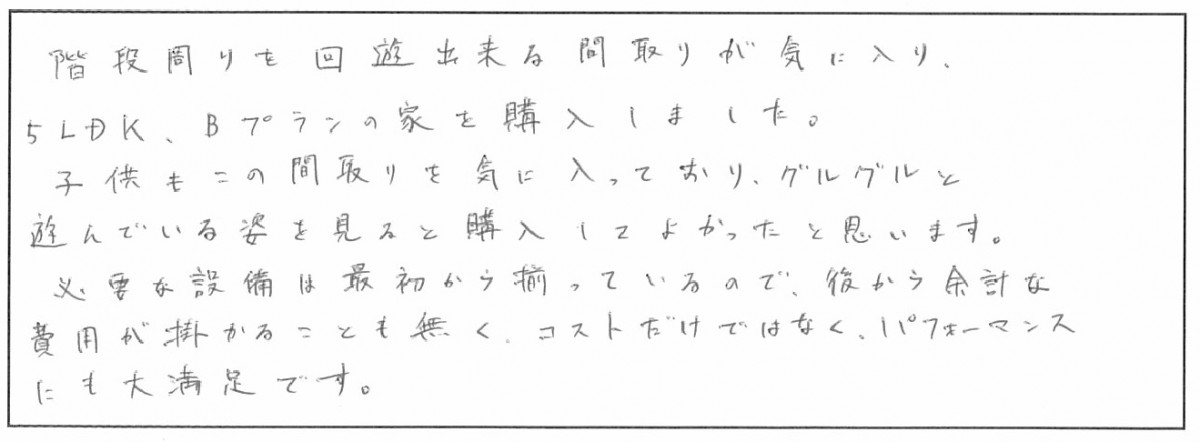 階段周りを回遊出来る間取りが気に入り、
5LDK、Bプランの家を購入しました。
子供もこの間取りを気に入っており、グルグルと
遊んでいる姿を見ると購入してよかったと思います。
必要な設備は最初から揃っているので、後から余計な
費用が掛かることも無く、コストだけではなく、パフォーマンス
にも大満足です。